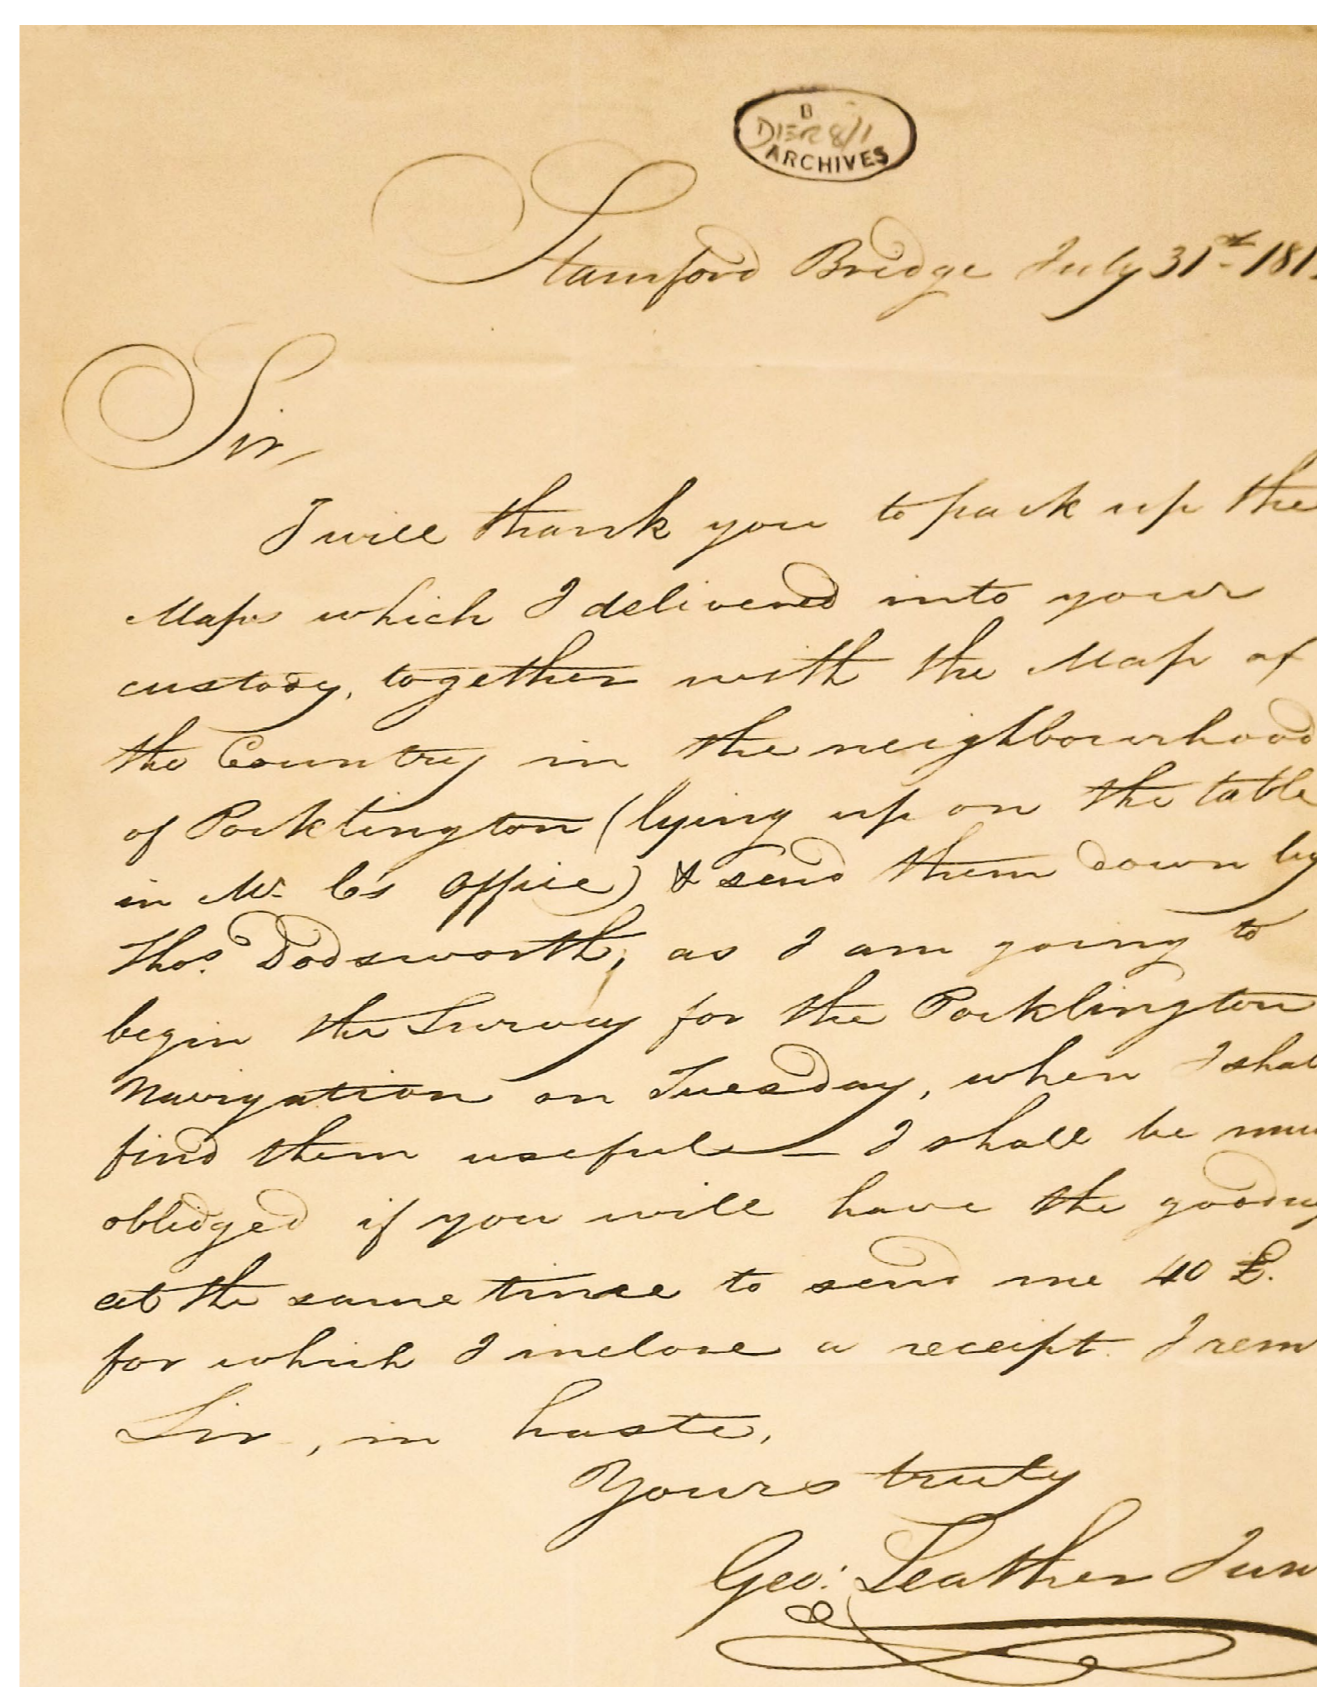 B
DDER 8/1
ARCHIVES
Stamford Bridge July 31st 181
Sir,
I will thank you to pack up the
Maps which I delivered into your
custody, together with the Map of
the Country in the neighbourhood
of Pocklington (lying up on the table
in Mr. C's Office) & send them down by
Thos. Dodsworth, as I am going to
begin the Survey for the Pocklington
Navigation on Tuesday, when I shal
find them useful — I shall be mu
obledged if you will have the goodne
at the same time to send me 40 £.
for which I inclose a receipt. I rem
Sir, in haste,
Yours truly
Geo: Leather Jun